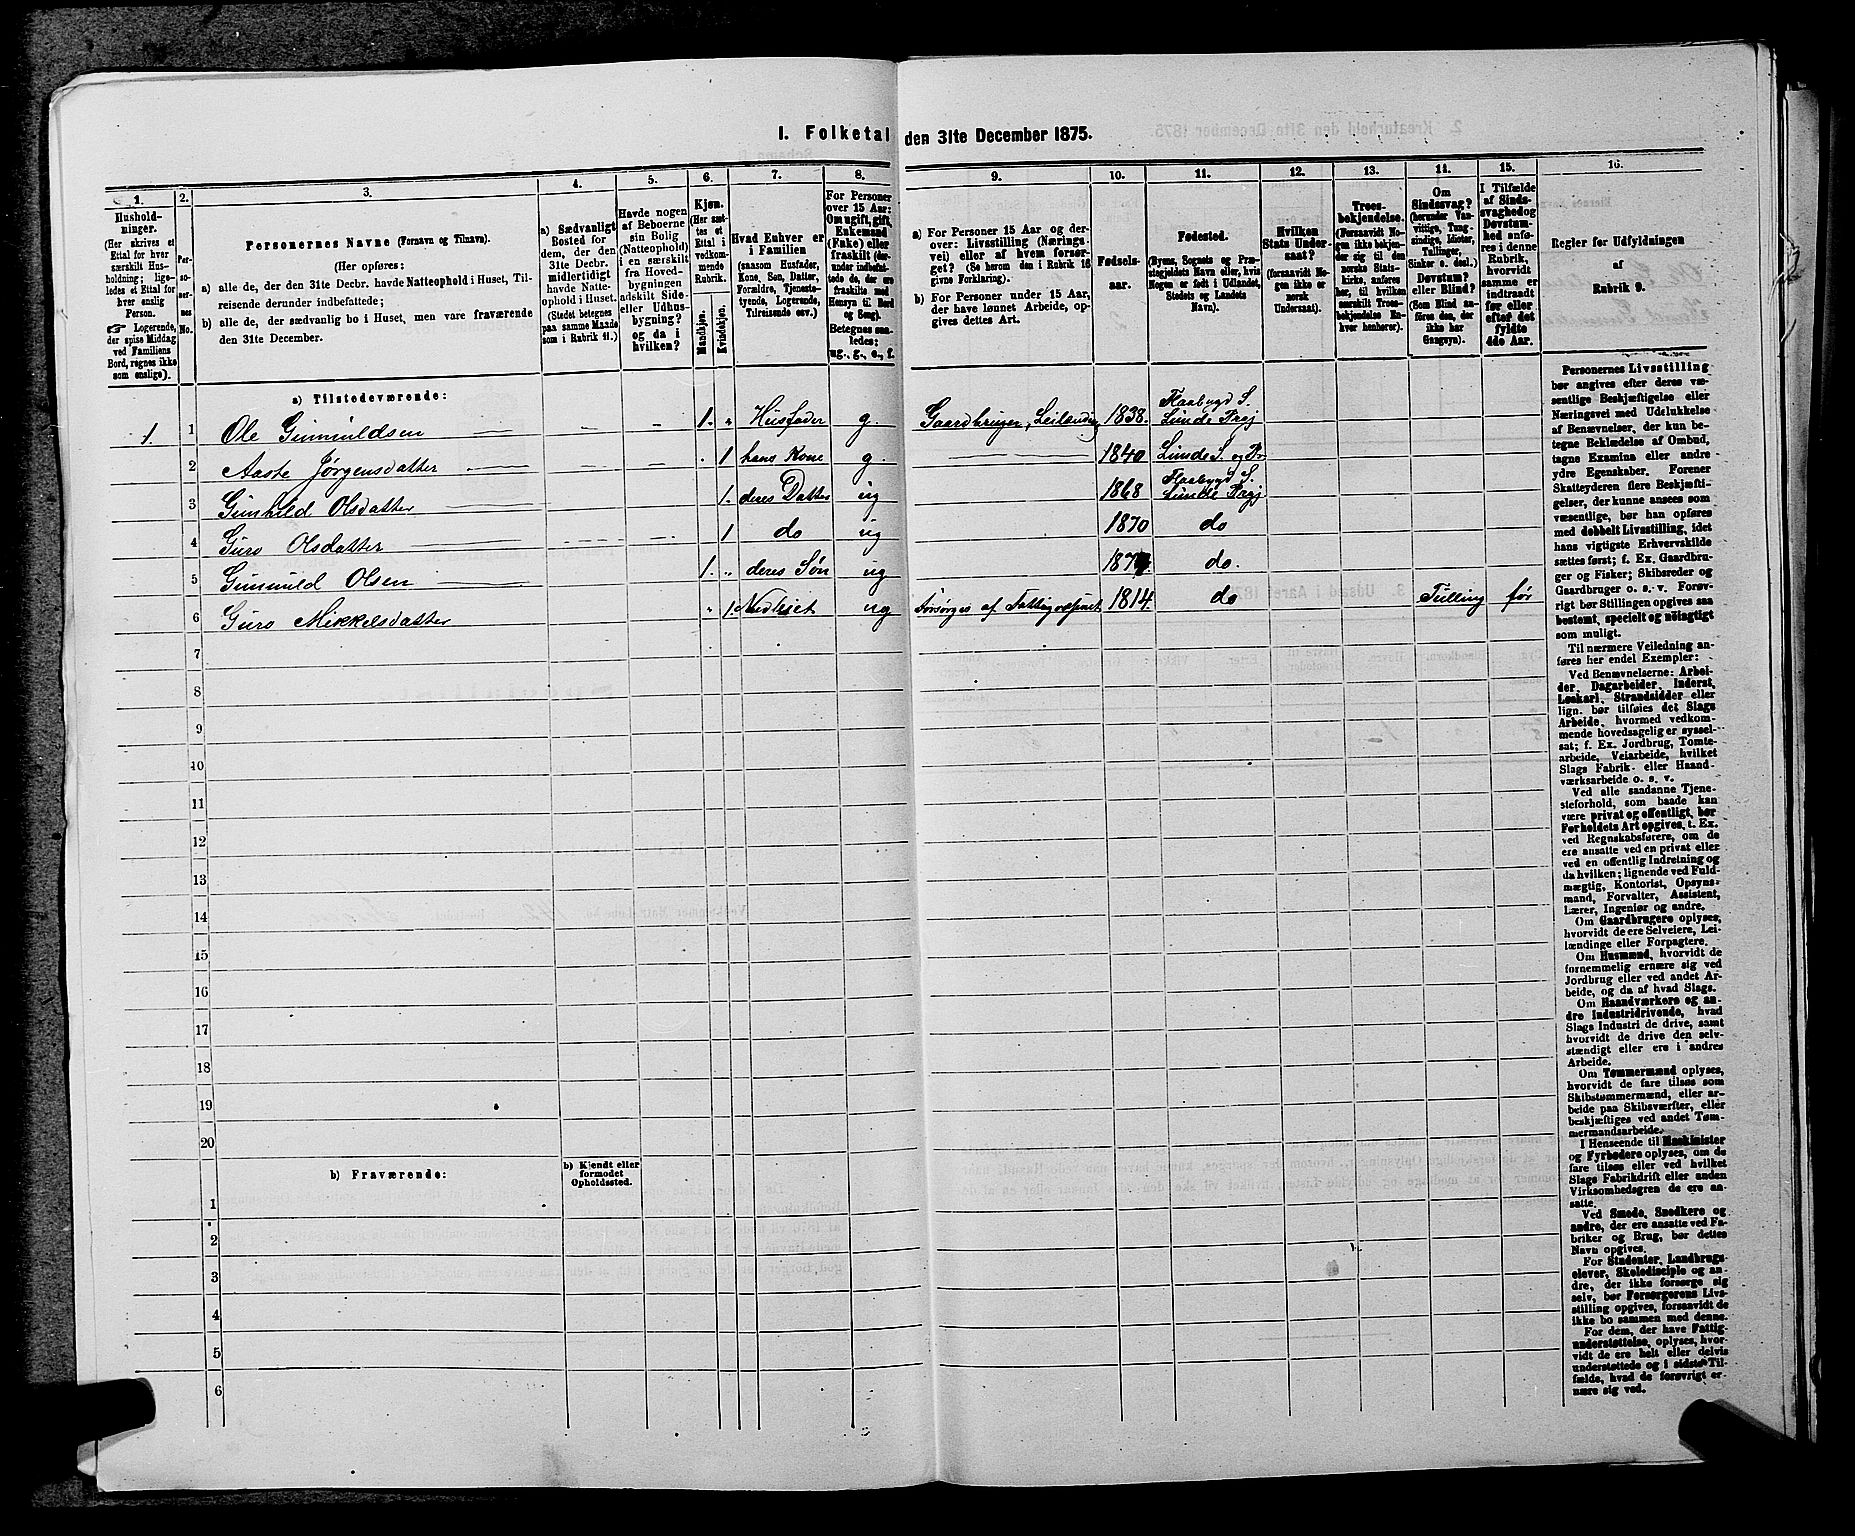 I. Folketal den 31te December 1875.
1. 2. 3. 4. 5. 6. 7. 8. 9. 10. 11. 12. 13. 14. 15. 16.
Hushold-
ninger.
(Her skrives et
Ettal for hver
særskilt Hus-
holdning; lige-
ledes et Ettal for
hver enslig
Person.
☞ Logerende,
der spise Middag
ved Familiens
Bord, regnes ikke
som enslige).
Per-
so-
ner-
nes
No.
Personernes Navne (Fornavn og Tilnavn).
(Her opføres:
a) alle de, der den 31te Decbr. havde Natteophold i Huset, Til-
reisende derunder indbefattede;
b) alle de, der sædvanlig bo i Huset, men vare fraværende
den 31te December.
a) Sædvanligt
Bosted for
dem, der den
31te Decbr.
midlertidigt
havde Natte-
ophold i Huset.
(Stedet betegnes
paa samme Maade
som i Rubrik 11.)
Havde nogen
af Beboerne
sin Bolig
(Natteophold)
i en særskilt
fra Hoved-
bygningen
adskilt Side-
eller Udhus-
bygning?
og da i
hvilken?
Kjøn.
(Her sæt-
tes et
Ettal i
vedkom-
mende
Rubrik.
Mandkjøn.
Kvindekjøn.
Hvad Enhver er
i Familien
(saasom Husfader,
Kone, Søn, Datter,
Forældre, Tjeneste-
tyende, Logerende,
Tilreisende osv.)
For Personer
over 15 Aar:
Om ugift, gift,
Enkemand
(Enke) eller
fraskilt (der-
under indbefat-
tede de, der ere
fraskilte med
Hensyn til Bord
og Seng).
Betegnes saa-
ledes:
ug., g., e., f.
a) For Personer 15 Aar og der-
over: Livsstilling (Nærings-
vei) eller af hvem forsør-
get? (Se herom den i Rubrik 16
givne Forklaring).
b) For Personer under 15 Aar,
der have lønnet Arbeide, op-
gives dettes Art.
Fødsels-
aar.
Fødested.
(Byens, Sognets og Præ-
stegjeldets Navn eller, hvis
Nogen er født i Udlandet,
Stedets og Landets
Navn).
Hvilken
Stats Under-
saat?
(forsaavidt No-
gen ikke er
norsk
Undersaat).
Troes-
bekjendelse.
(Forsaavidt No-
gen ikke bekjen-
der sig til den
norske Stats-
kirke, anføres
her, til hvilken
særskilt Troes-
bekjendelse En-
hver henhører).
Om
Sindssvag?
(herunder Van-
vittige, Tung-
sindige, Idioter,
Tullinger,
Sinker o. desl.)
Døvstum?
eller Blind?
(Som Blind an-
føres den, der
ikke har
Gangsyn).
I Tilfælde
af Sinds-
svaghed og
Døvstum-
hed anfø-
res i denne
Rubrik,
hvorvidt
samme er
indtraadt
før eller
efter det
fyldte
4de Aar.
Regler for Udfyldningen
af
Rubrik 9.
a) Tilstedeværende:
1. 1 Ole Gunnuldsen 1. „ Husfader g. Gaardbruger, Leilænding 1838. Flaabygd S. Lunde Prgj
2 Aaste Jørgensdatter 1 hans Kone g. 1840 Lunde S. og Pr
3 Gunhild Olsdatter 1. deres Datter ug 1868 Flaabygd S. Lunde Prgj
4 Guro Olsdatter 1 do ug 1870 do
5 Gunnuld Olsen 1. „ deres Søn ug do.
6 Guro Mikkelsdatter „ 1. ug forsørges af Fattigvæsenet 1814. do Tulling før
7
8
9
10
11
12
13
14
15
16
17
18
19
20
b) Fraværende:
b) Kjendt eller
formodet
Opholdssted.
1
2
3
4
5
6
Personernes Livsstilling
bør angives efter deres væ-
sentlige Beskjæftigelse eller
Næringsvei med Udelukkelse
af Benævnelser, der kun be-
tegne Beklædelse af Ombud,
tagne Examina eller andre
ydre Egenskaber. Forener
Skatteyderen flere Beskjæfti-
gelser, der kunne ansees som
væsentlige, bør han opføres
med dobbelt Livsstilling, idet
hans vigtigste Erhvervskilde
sættes først; f. Ex. Gaardbru-
ger og Fisker; Skibsreder og
Gaardbruger o. s. v. Forøv-
rigt bør Stillingen opgives saa
bestemt, specielt og nöiagtigt
som muligt.
Til nærmere Veiledning an-
føres her endel Exempler:
Ved Benævnelserne: Arbei-
der, Dagarbeider, Inderst,
Løskarl, Strandsidder eller
lign. bør tilføies det Slags
Arbeide, hvormed vedkom-
mende hovedsagelig er syssel-
sat; f. Ex. Jordbrug, Tomte-
arbeide, Veiarbeide, hvilket
Slags Fabrik- eller Haand-
værksarbeide o. s. v.
Ved alle saadanne Tjene-
steforhold, som baade kan
være privat og offentligt, bør
Forholdets Art opgives, t. Ex.
ved Regnskabsførere, om de
ere ansatte ved en privat eller
ved en offentlig Indretning og
da hvilken; lignende ved Fuld-
mægtig, Kontorist, Opsyns-
mand, Forvalter, Assistent,
Lærer, Ingeniør og andre.
Om Gaardbrugere oplyses,
hvorvidt de ere Selveiere, Lei-
lændinge eller Forpagtere.
Om Husmænd, hvorvidt de
fornemmelig ernære sig ved
Jordbrug eller ved andet Ar-
beide, og da af hvad Slags.
Om Haandværkere og an-
dre Industridrivende, hvad
Slags Industri de drive, samt
hvorvidt de drive den selv-
stændigt eller ere i andres
Arbeide.
Om Tømmermænd oplyses,
hvorvidt de fare tilsøs som
Skibstømmermænd, eller ar-
beide paa Skibsværfter, eller
beskjæftiges ved andet Tøm-
mermandsarbeide.
I Henseende til Maskinister
og Fyrbødere oplyses, om de
fare tilsøs eller ved hvilket
Slags Fabrikdrift eller anden
Virksomhedsgren de ere an-
satte.
Ved Smede, Snedkere og
andre, der ere ansatte ved Fa-
briker og Brug, bør dettes
Navn opgives.
For Studenter, Landbrugs-
elever, Skoledisciple og an-
dre, der ikke forsørge sig
selv, bør Forsørgerens Livs-
stilling opgives, forsaavidt de
ikke bo sammen med denne.
For dem, der have Fattig-
understøttelse, oplyses, hvor-
vidt de ere helt eller delvis
understøttede og i sidste Til-
fælde, hvad de forøvrigt er-
nære sig ved.